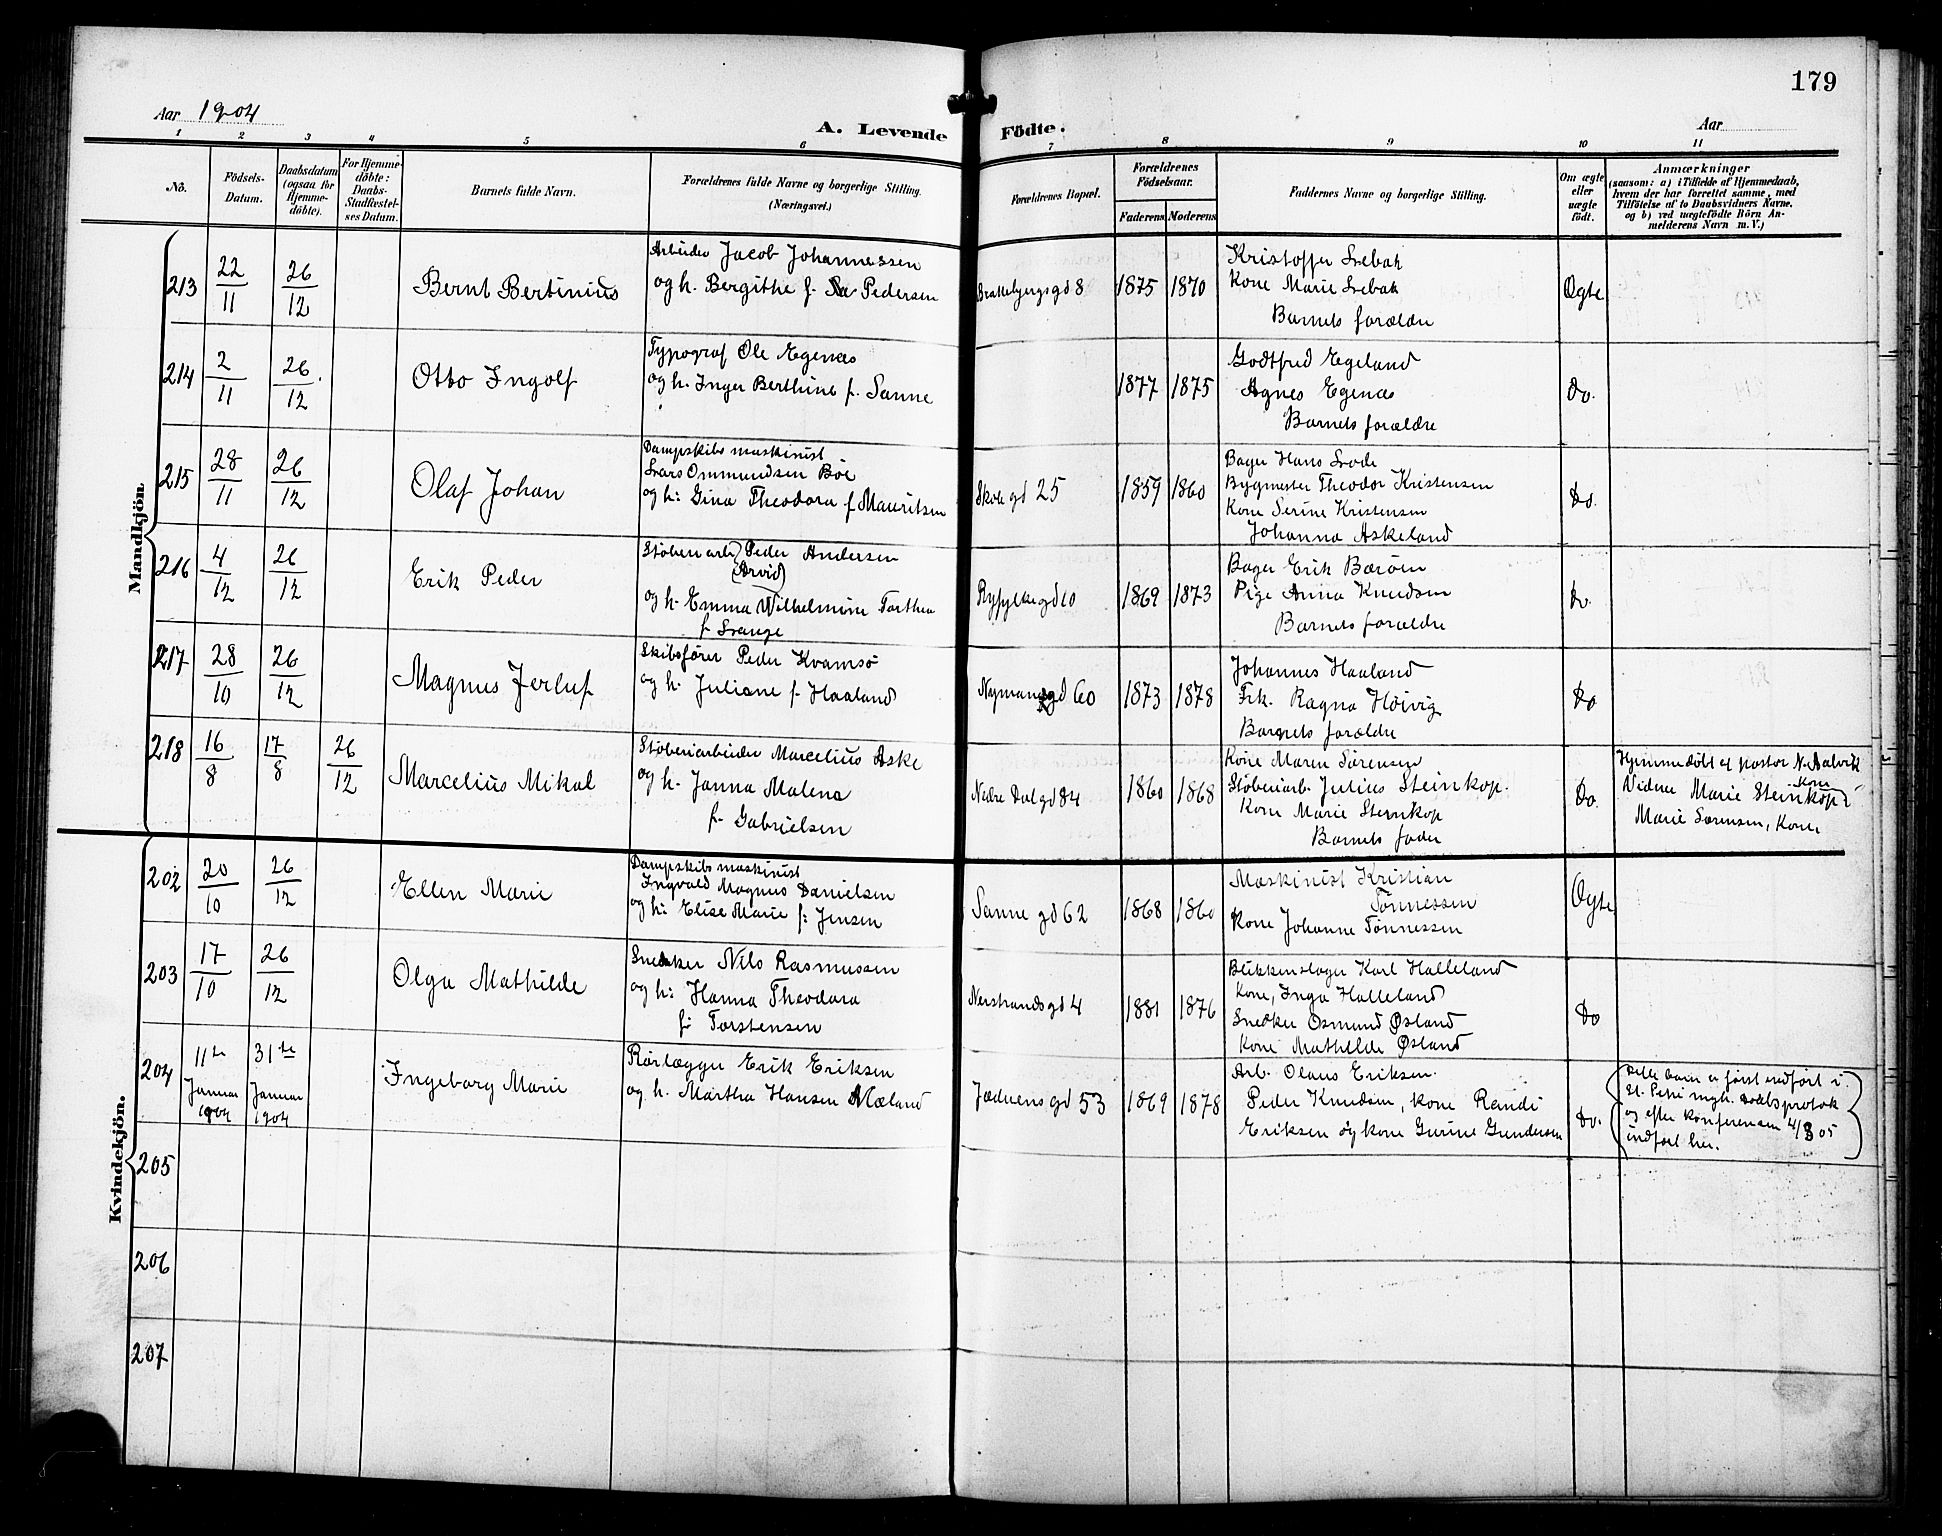 179
Aar 1904
A. Levende Födte.
Aar
1 2 3 4 5 6 7 8 9 10 11
No.
Födsels-Datum.
Daabsdatum (ogsaa for Hjemme-döbte).
For Hjemme-döbte: Daabs-Stadfæstel-ses Datum.
Barnets fulde Navn.
Forældrenes fulde Navne og borgerlige Stilling.
(Næringsvei.)
Forældrenes Bopæl.
Forældrenes Födselsaar.
Faderens Moderens
Faddernes Navne og borgerlige Stilling.
Om ægte eller uægte födt.
Anmærkninger
(saasom: a) i Tilfælde af Hjemmedaab,
hvem der har forrettet samme, med
Tilföielse af to Daabsvidners Navne.
og b) ved uægtefödte Börn An-
melderens Navn m. V.)
Mandkjön
213 22/11 26/12 Bernt Bertinius
Arbeider Jacob Johannessen
og h. Bergithe f. Pedersen
Brattebjergsgd 8 1875 1870
Kristoffer Srebak
Kone Marie Srebak
Barnets forældre
Ægte
214 2/11 26/12 Otto Ingolf
Typograf Ole Egenæs
og h. Inger Berthine f. Sanne
1877 1875
Godtfred Egeland
Agnes Egenæs
Barnets forældre
Do.
215 28/11 26/12 Olaf Johan
Dampskibsmaskinist
Lars Ommundsen Böe
og h: Gina Theodora f Mauritsen
Skolegd 25 1859 1860
Bager Hans
Bygmester Theodor Kristensen
Kone Serine Kristensen
Johanna Askeland
Do.
216 4/12 26/12 Erik Peder
Støberiarb Peder Andersen
(Arvid)
og h. Emma Wilhelmine Torthea
f Svange
Ryfylkegd 10 1869 1873
Bager Erik Bærøen
Pige Anna Knudsen
Barnets forældre
Do.
217 28/10 26/12 Magnus Jerluf
Skibsfører Peder Kvamsö
og h. Juliane f. Haaland
Nymansgd 60 1873 1878
Johannes Haaland
Frk. Ragna Høivig
Barnets forældre
Do
218 16/8 17/8 26/12 Marcelius Mikal
Støberiarbeider Marcelius Aske
og h. Janna Malena
f. Gabrielsen
Nedre Dalgd 84 1860 1868
Kone Maren Sørensen
Støberiarb. Julius Steinkop.
Kone Marie Steinkop
Barnets fader
Do.
Hjemmedöbt af pastor N. Dalvik
Vidner Marie Steinkop, Kone
Marie Sørensen, Kone
Kvindekjön.
202 20/10 26/12 Ellen Marie
Dampskibsmaskinist
Ingvald Magnus Danielsen
og h: Elise Marie f: Jensen
Sannegd 62 1868 1860
Maskinist Kristian
Tønnessen
Kone Johanne Tønnessen
Ægte
203 17/10 26/12 Olga Mathilde
Snedker Nils Rasmussen
og h: Hanna Theodora
f: Torstensen
Nerstrandsgd 4 1881 1876
Blikkenslager Karl Halleland
Kone, Inga Halleland
Snedker Osmund Østand
Kone Mathilde Østand
Do
204 11te Januar 1904 31te Januar 1904 Ingeborg Marie
Rørlægger Erik Eriksen
og h. Martha Hansen Mæland
Jædrensgd 53 1869 1878
Arb. Olaus Eriksen.
Peder Knudsen, kone Randi
Eriksen og kone Gurine Gundersen
Do.
Dette barn er først indført i
St. Petri mgh. daabsprotok
og efter konferensen 4/3 05
indført her.
205
206
207